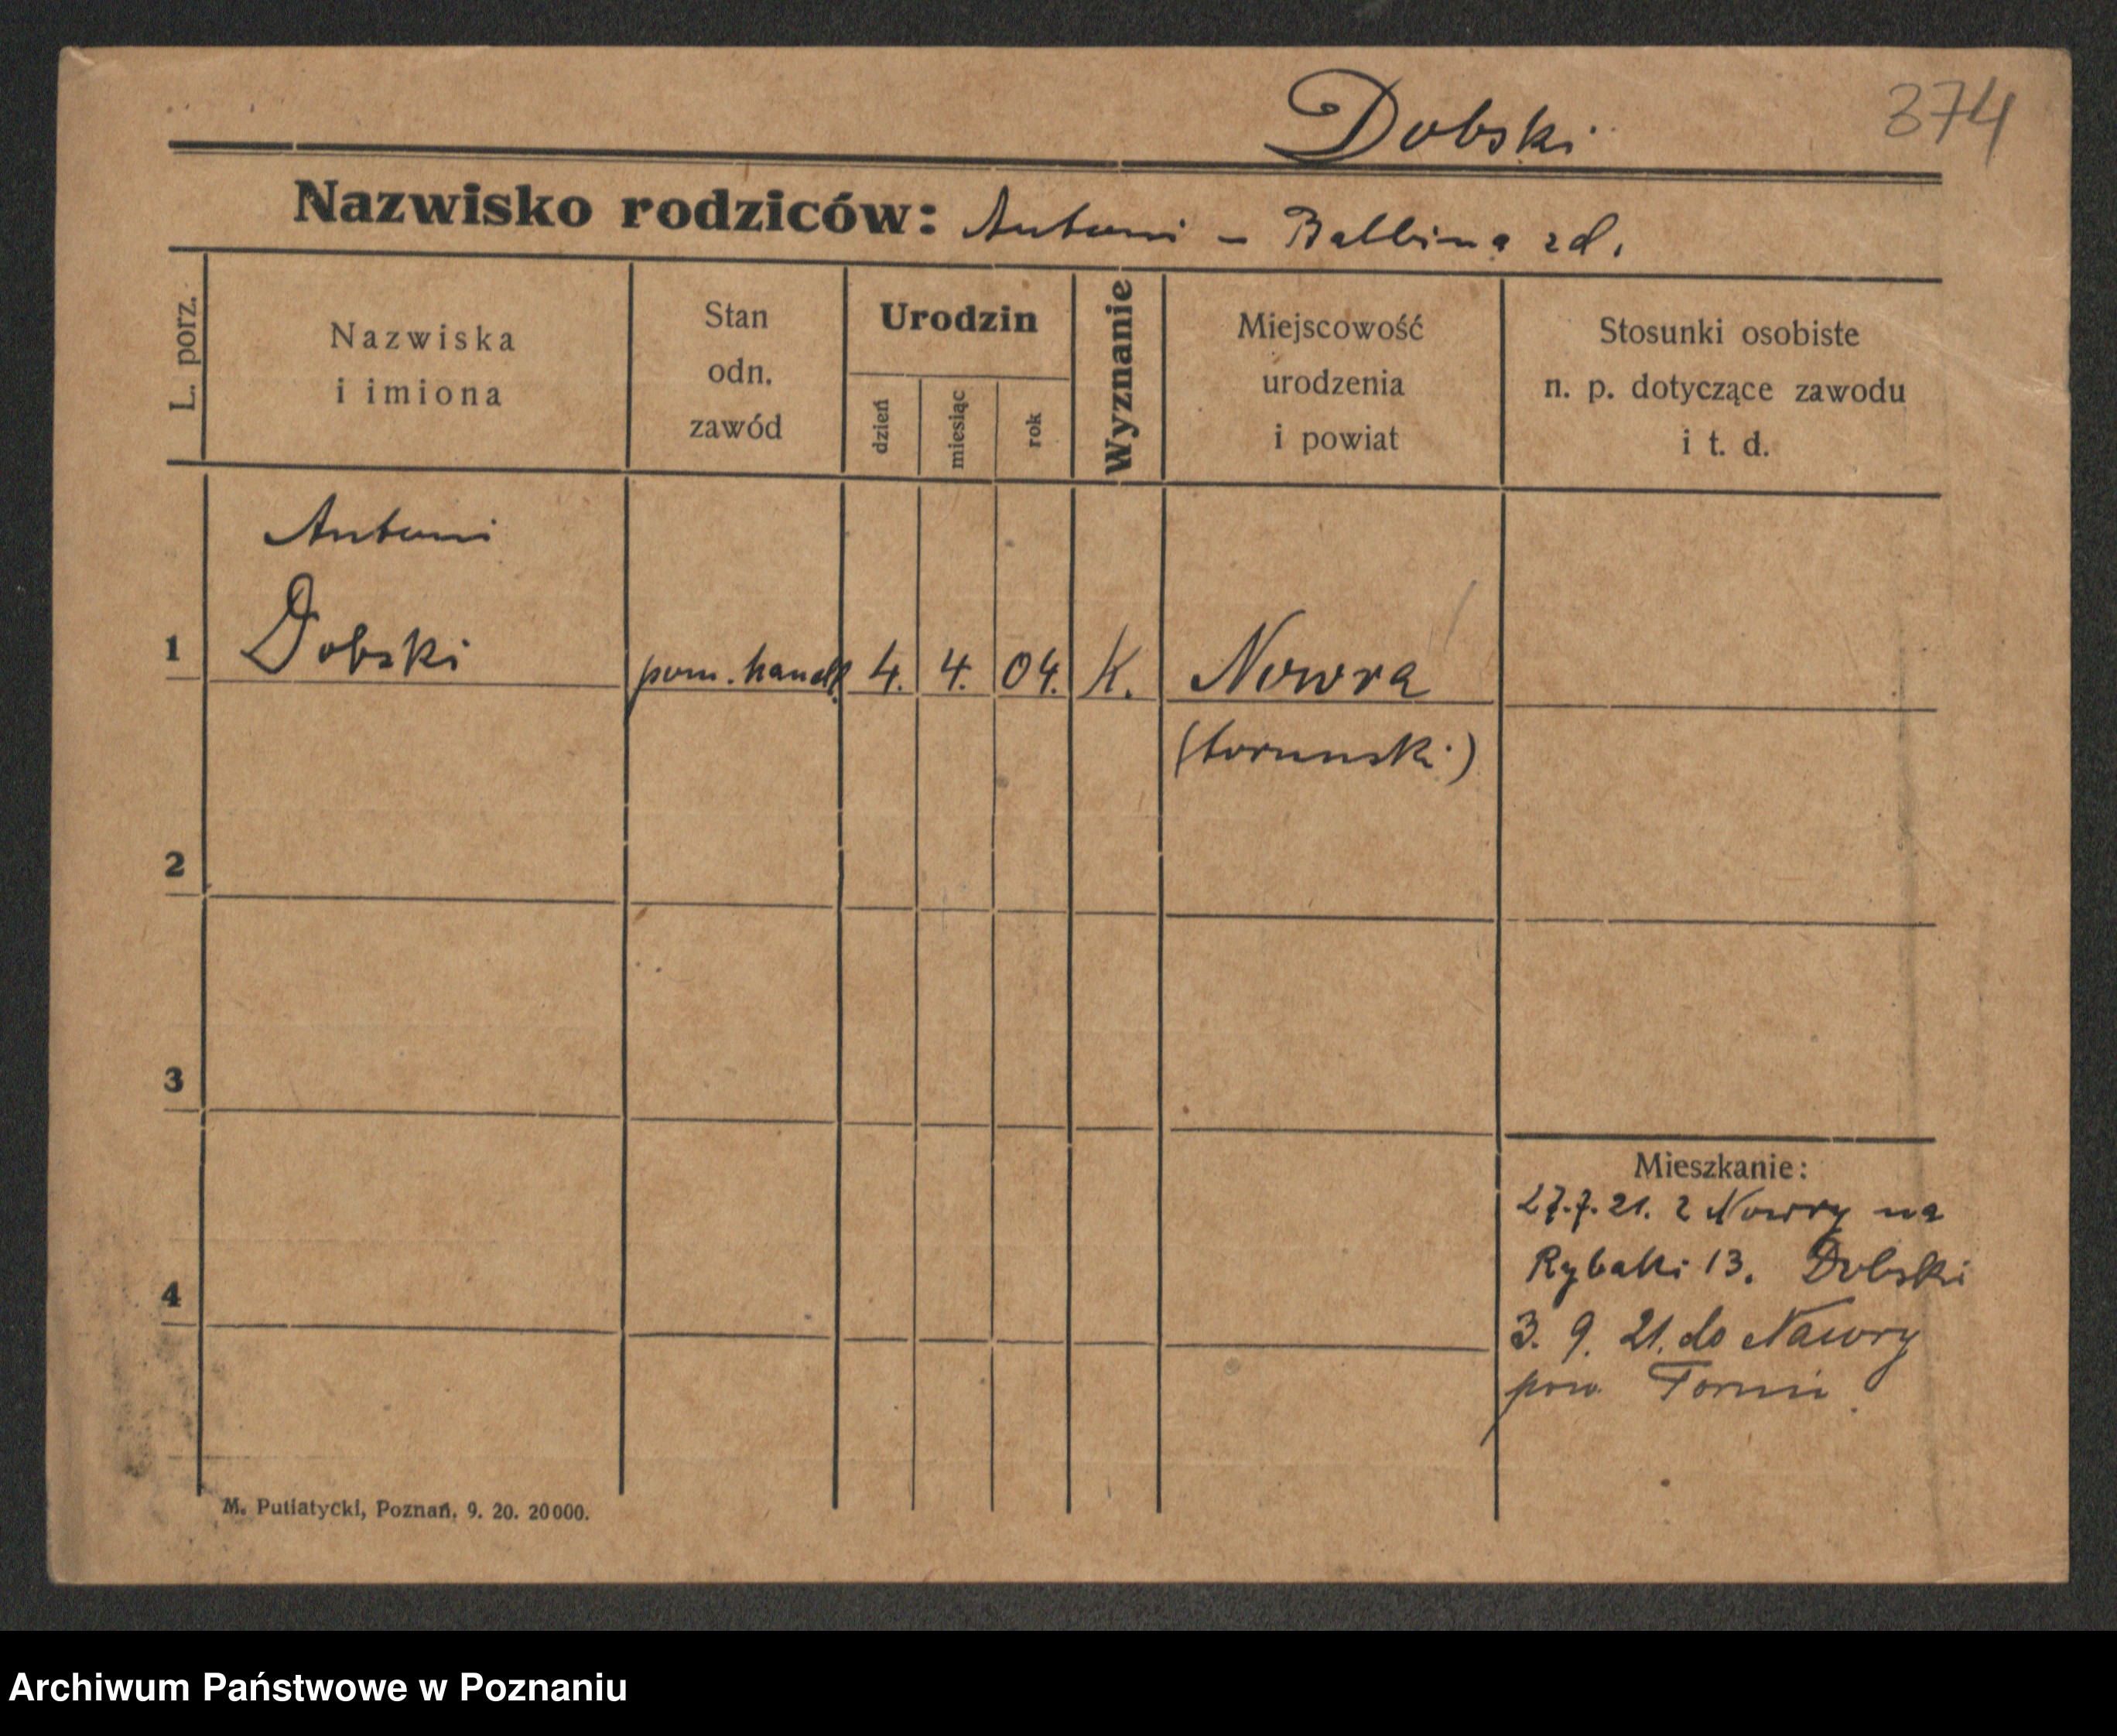 Dobski
374
Nazwisko rodziców: Antoni – Balbina zd.
L. porz.
Nazwiska
i imiona
Stan
odn.
zawód
Urodzin
dzień
miesiąc
rok
Wyznanie
Miejscowość
urodzenia
i powiat
Stosunki osobiste
n. p. dotyczące zawodu
i t. d.
Antoni
1 Dobski pom. handl. 4. 4. 04. K. Nowra
(torunski)
2
3
4
Mieszkanie:
27.7.21. z Nowry na
Rybaki 13. Dobski
3. 9. 21. do Nawry
pow Toruń
M. Putiatycki, Poznań, 9. 20. 20000.
Archiwum Państwowe w Poznaniu